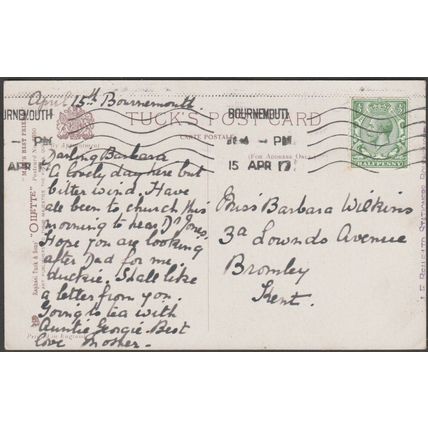 April 15th Bournemouth
BOURNEMOUTH
PM
APR 17
TUCK'S POST CARD
CARTE POSTALE
(FOR ADDRESS ONLY)
BOURNEMOUTH
- PM
15 APR 17
HALFPENNY
"OILETTE"
Raphael Tuck & Sons'
Darling Barbara
A lovely day here but
bitter wind. Have
all been to church this
morning to hear Dr Jones.
Hope you are looking
after Dad for me,
duckie. Shall like
a letter from you.
Going to tea with
Auntie Georgie. Best
love Mother.
Miss Barbara Wilkins
3a Lownds Avenue
Bromley
Kent.